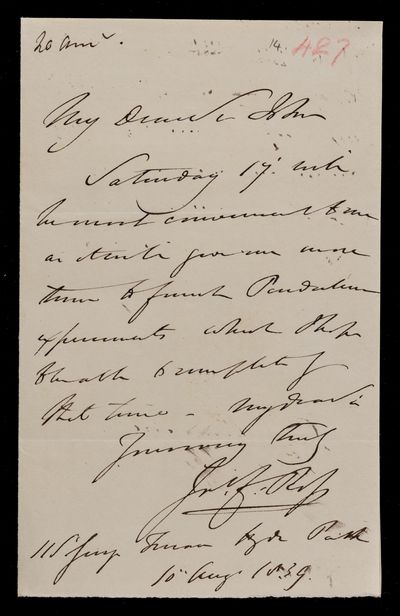 20 Anr.
14. 427
My Dear Sir John
Saturday 17th will
be most convenient to me
as it will give me more
time to finish Pendulum
experiments which I hope
to be able to complete by
that time – My dear Sir
Yours very truly
Jas. C. Ross
Hyde Park
10 Aug 1839.